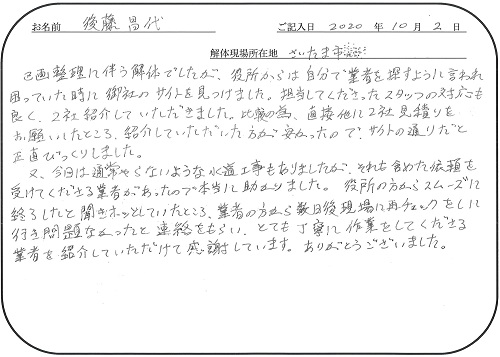 お名前 後藤 昌代 ご記入日 2020 年 10 月 2 日
解体現場所在地 さいたま市
区画整理に伴う解体でしたが、役所からは自分で業者を探すように言われ
困っていた時に御社のサイトを見つけました。担当してくださったスタッフの対応も
良く、2社紹介していただきました。比較の為、直接他に2社見積りを
お願いしたところ、紹介していただいた方が安かったので、サイトの通りだと
正直びっくりしました。
又、今回は通常やらないような水道工事もありましたが、それも含めた依頼を
受けてくださる業者があったので本当に助かりました。役所の方からスムーズに
終了したと聞きホッとしていたところ、業者の方から数日後現場に再チェックをしに
行き問題なかったと連絡をもらい、とても丁寧に作業をしてくださる
業者を紹介していただけて感謝しています。ありがとうございました。